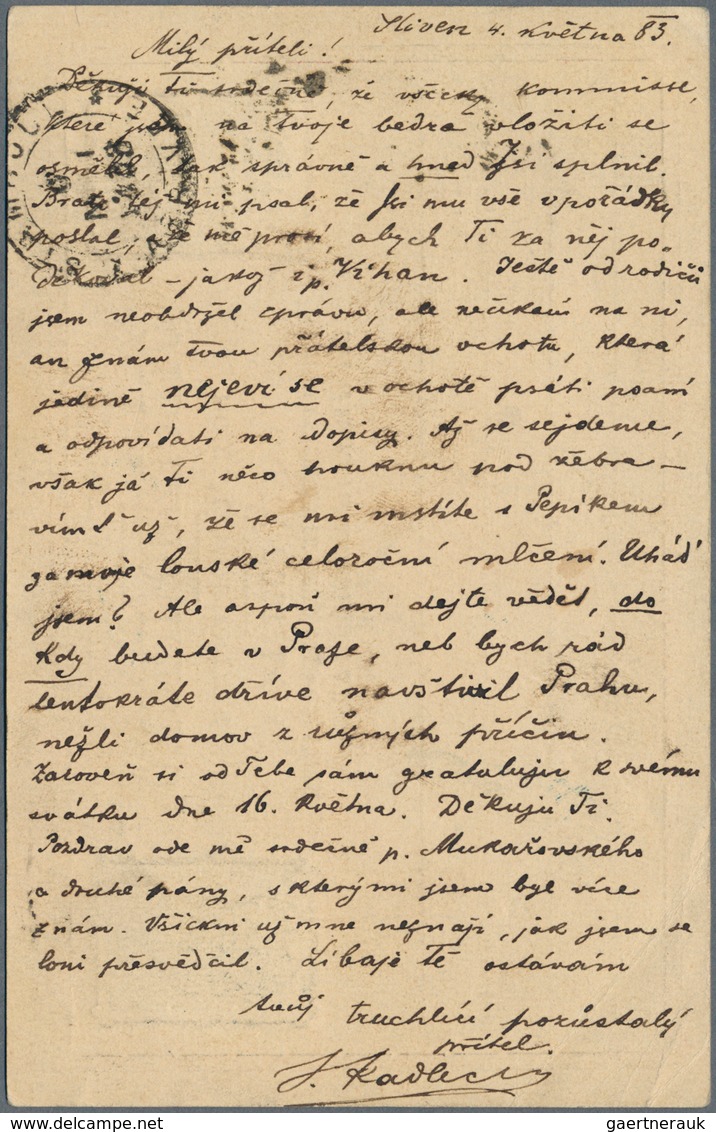 Sliven 4. května 83.
Milý příteli!
Děkuji Ti srdečně, že všecky kommisse,
které jsem na tvoje bedra vložiti se
osmělil, tak správně a hned Jsi splnil.
Bratr též mi psal, že Jsi mu vše v pořádku
poslal, a že mě prosí, abych Ti za něj po-
děkoval – jakož i p. Vihan. Ještě od rodičů
jsem neobdržel zprávu, ale nečekám na ni,
an znám tvou přátelskou ochotu, která
jedině nejeví se v ochotě psáti psaní
a odpovídati na dopisy. Až se sejdeme,
však já Ti něco houknu pod žebra –
vímť už, že se mi mstíte s Pepíkem
za moje loňské celoroční mlčení. Uhád'
jsem? Ale aspoň mi dejte věděť, do
kdy budete v Praze, neb bych rád
tentokráte dříve navštívil Prahu,
nežli domov z různých příčin.
Zároveň si od Tebe sám gratuluju k svému
svátku dne 16. května. Děkuju Ti.
Pozdrav ode mě srdečně p. Mukařovského
a druhé pány, s kterými jsem byl více
znám. Všickni už mne neznají, jak jsem se
loni přesvědčil. Líbaje Tě ostávám
tvůj truchlící pozůstalý
přítel.
J. Kadlec
gaertnerauk